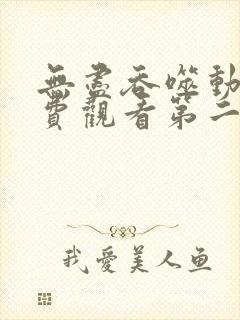 無盡吞噬動
費觀看第二
我愛美人鱼